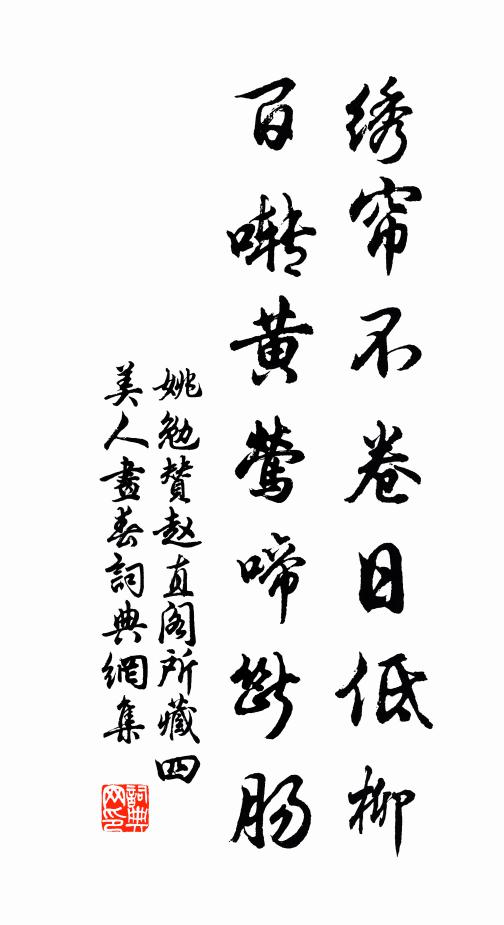 绣帘不卷日低柳
百啭黄莺啼断肠
姚勉赞赵直阁所藏四
美人画春词典网集
词典
网印